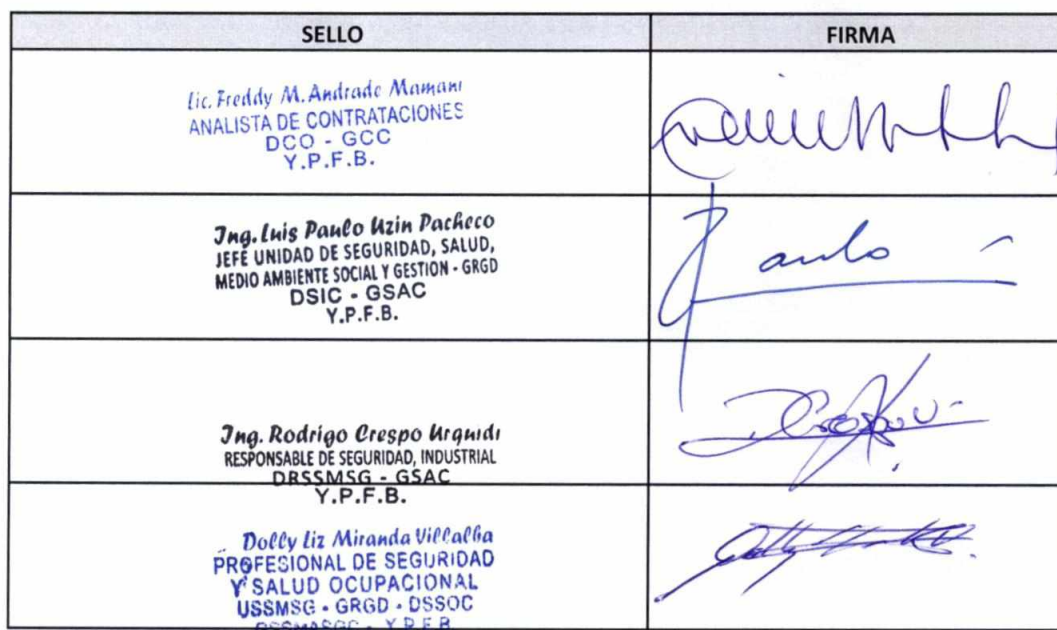 SELLO
FIRMA
Lic. Freddy M. Andrade Mamani
ANALISTA DE CONTRATACIONES
DCO - GCC
Y.P.F.B.
Ing. Luis Paulo Uzin Pacheco
JEFE UNIDAD DE SEGURIDAD, SALUD,
MEDIO AMBIENTE SOCIAL Y GESTION - GRGD
DSIC - GSAC
Y.P.F.B.
Paulo
Ing. Rodrigo Crespo Urquidi
RESPONSABLE DE SEGURIDAD, INDUSTRIAL
DRSSMSG - GSAC
Y.P.F.B.
Dolly Liz Miranda Villalba
PROFESIONAL DE SEGURIDAD
Y SALUD OCUPACIONAL
USSMSG - GRGD - DSSOC
Y.P.F.B.